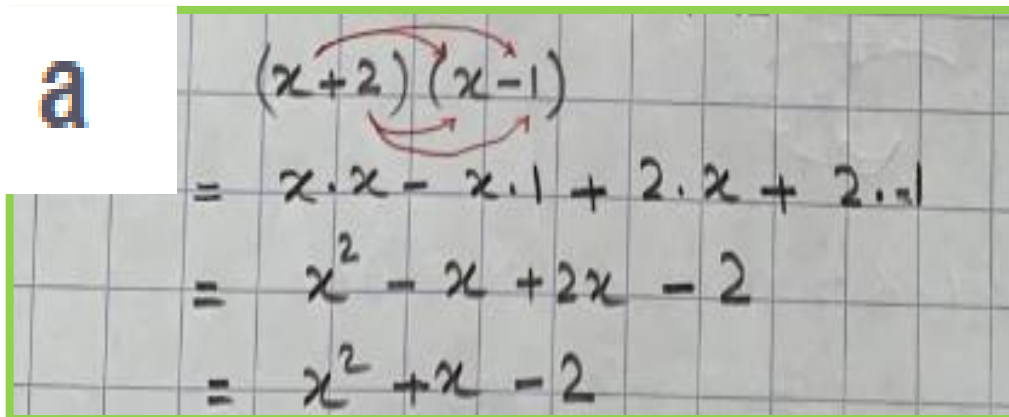 a
(x+2)(x-1)
= x.x - x.1 + 2.x + 2.-1
= x² - x + 2x - 2
= x² + x - 2